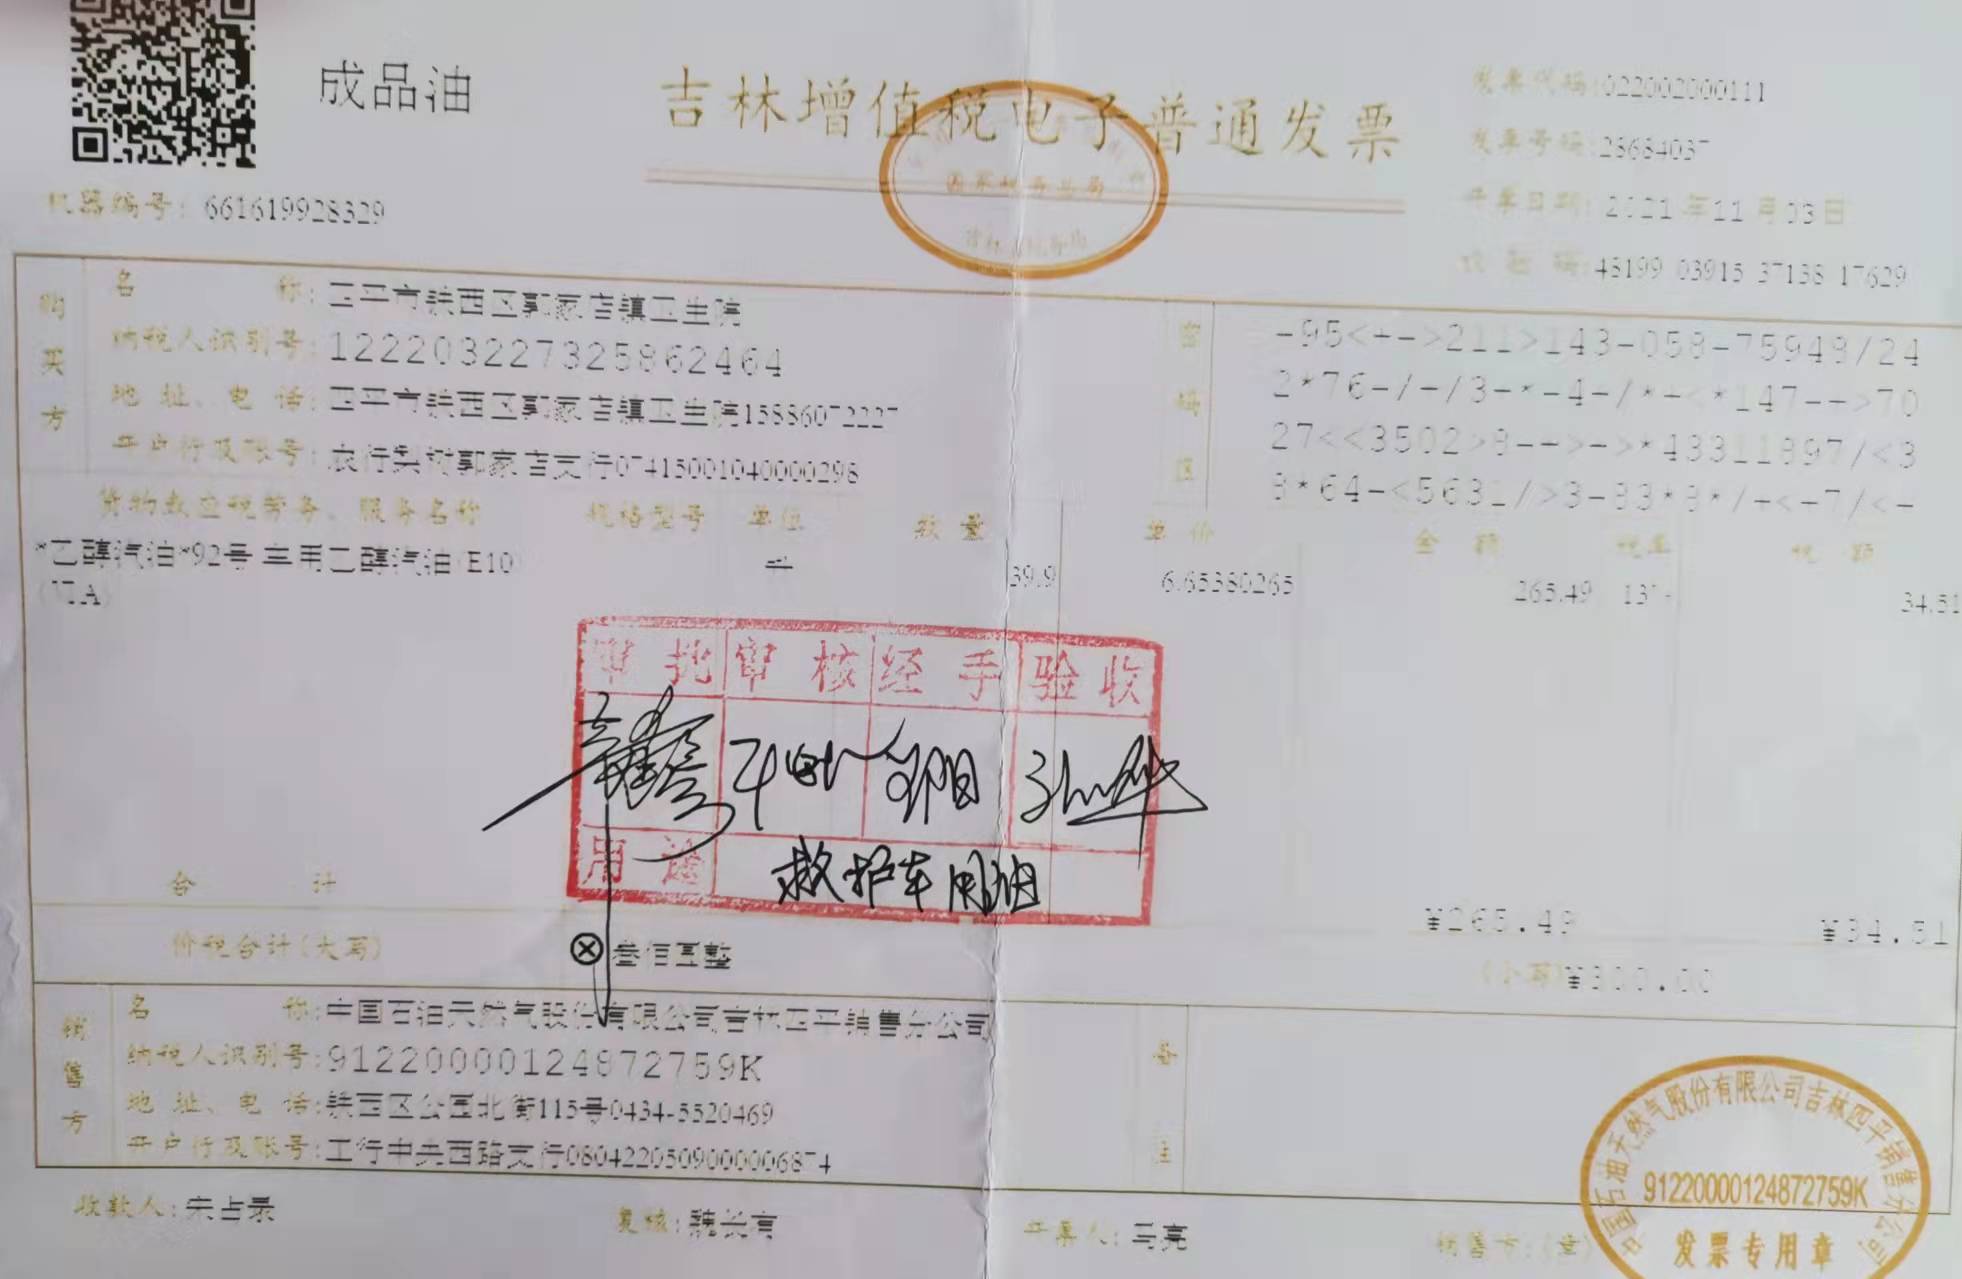 成品油
吉林增值税电子普通发票
发票代码:022002000111
发票号码:28684037
开票日期: 2021 年11 月03 日
校 验 码:48199 03915 37138 17629
机器编号: 661619928329
国家税务总局
吉林省税务局
购买方
名 称: 四平市铁西区郭家店镇卫生院
纳税人识别号: 122203227325862464
地 址、电 话: 四平市铁西区郭家店镇卫生院15886072227
开户行及账号: 农行梨树郭家店支行07415001040000298
密码区
-95<+->211>143-058-75948/24
2*76-/-/3-*-4-/*+<*147-->70
27<<3502>8-->->*43311897/<3
8*64-<5631/>3-83*8*/+<+7/<-
货物或应税劳务、服务名称 规格型号 单位 数 量 单 价 金 额 税率 税 额
*乙醇汽油*92号 车用乙醇汽油(E10) 升 39.9 6.65380265 265.49 13% 34.51
(VIA)
审 批 审 核 经 手 验 收
用 途 救护车用油
合 计 ¥265.49 ¥34.51
价税合计(大写) ⊗叁佰圆整 (小写)¥300.00
销售方
名 称: 中国石油天然气股份有限公司吉林四平销售分公司
纳税人识别号: 91220000124872759K
地 址、电 话: 铁西区公园北街115号0434-5520469
开户行及账号: 工行中央西路支行0804220509000006874
备注
收款人: 宋占录 复核: 魏长有 开票人: 马亮 销售方:(章)
中国石油天然气股份有限公司吉林四平销售分公司
91220000124872759K
发票专用章